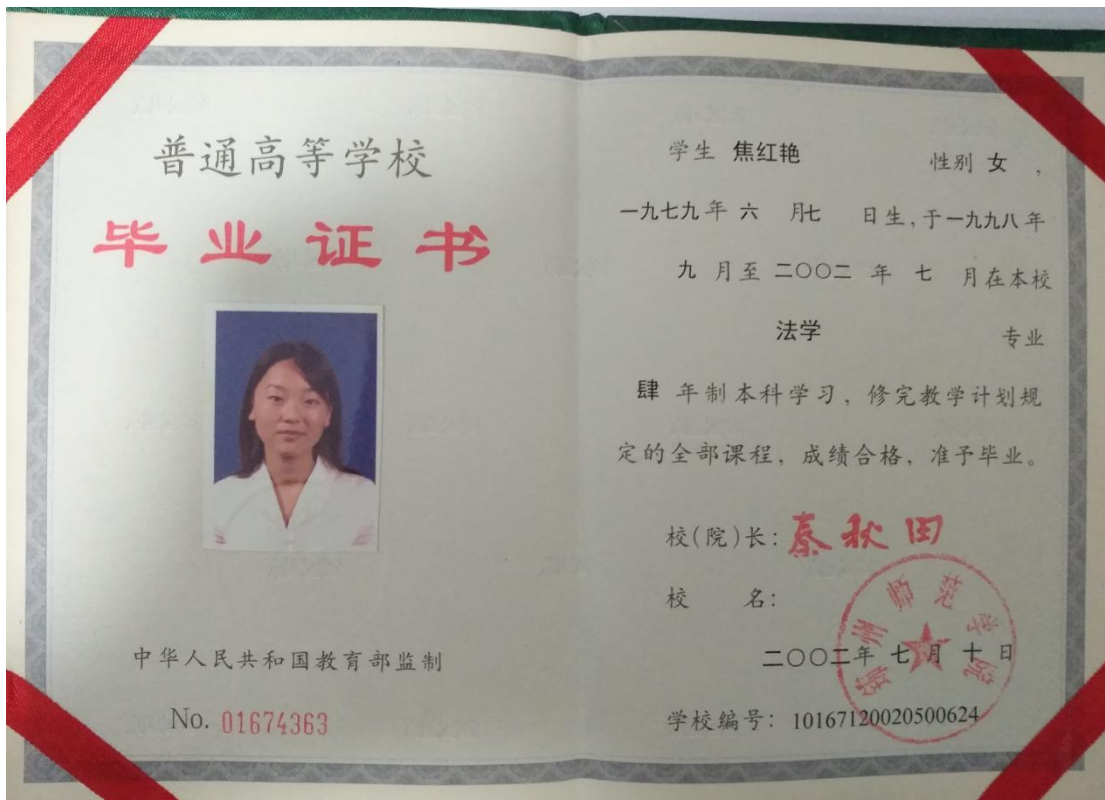 普通高等学校
毕业证书
中华人民共和国教育部监制
No. 01674363
学生 焦红艳 性别 女 ，
一九七九年 六 月七 日生，于一九九八年
九 月至 二〇〇二 年 七 月在本校
法学 专业
肆 年制本科学习，修完教学计划规
定的全部课程，成绩合格，准予毕业。
校(院)长：秦秋田
校 名：
锦州师范学院
二〇〇二年 七 月 十 日
学校编号：10167120020500624